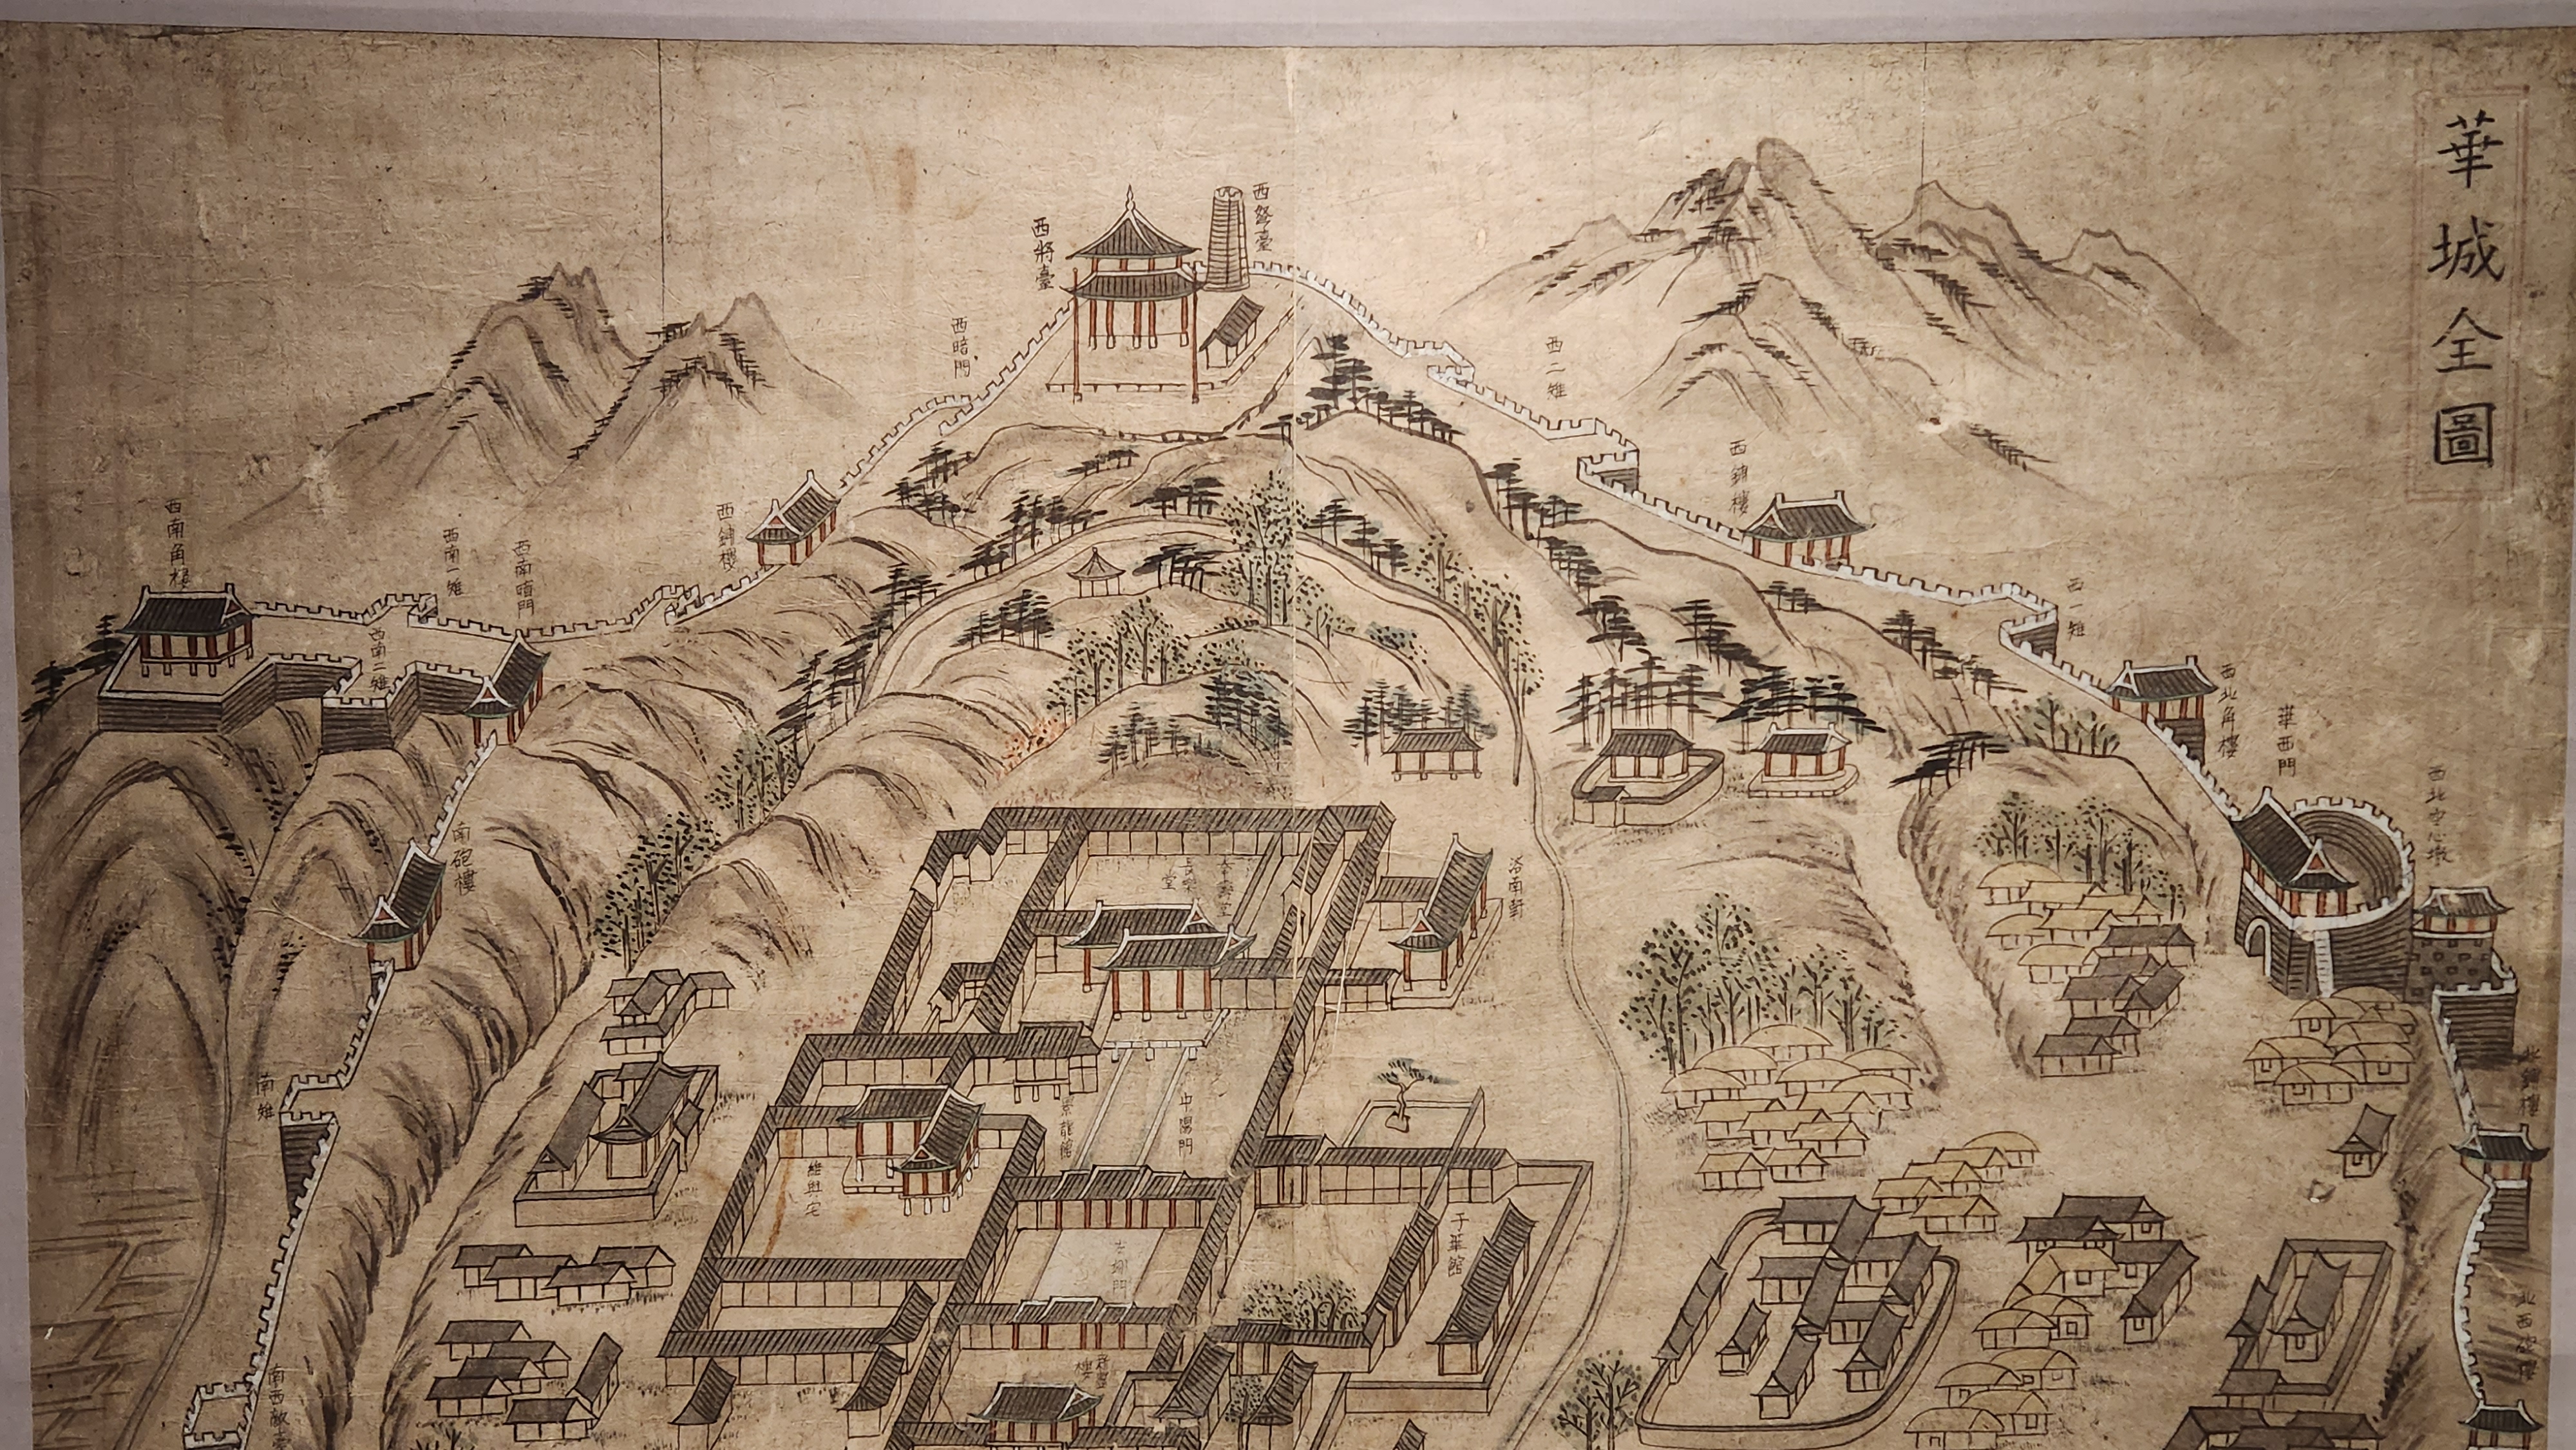 華城全圖
西弩臺
西將臺
西暗門
西二雉
西鋪樓
西一雉
西北角樓
華西門
西北空心墩
西南角樓
西南一雉
西南暗門
西鋪樓
西南二雉
南砲樓
南雉
長樂堂
洛南軒
中陽門
維與宅
左翊門
于華館
北鋪樓
北西砲樓